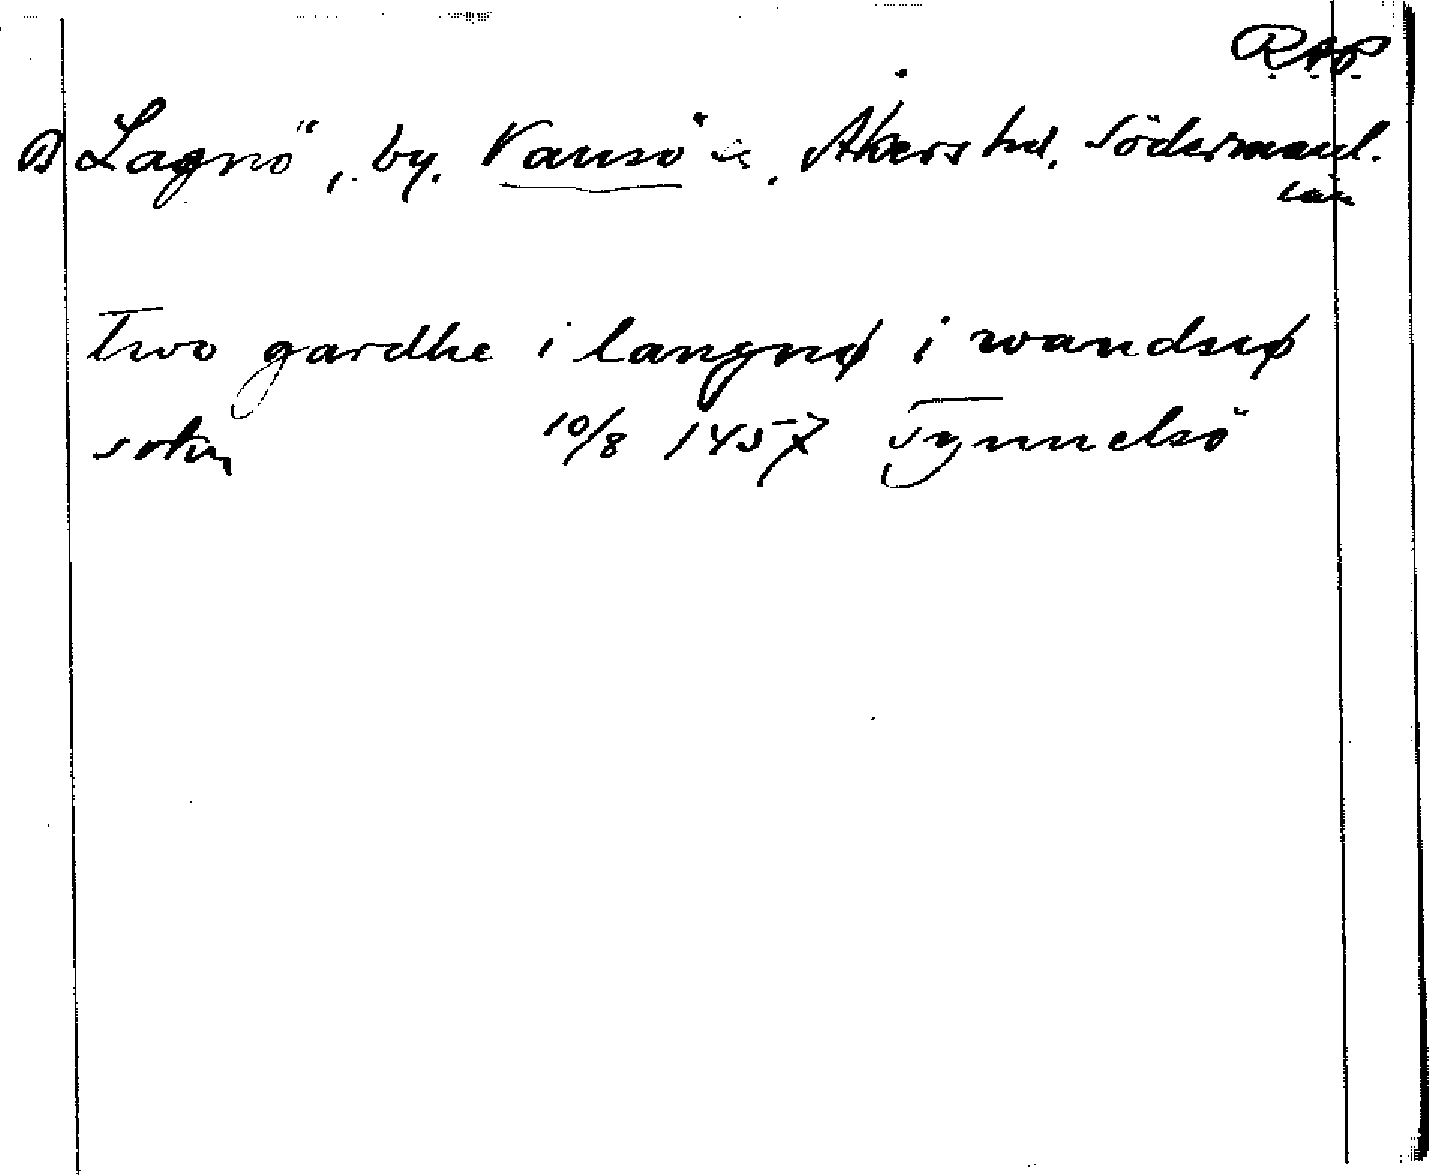 RAP
B Lagnö, by. Vansö sn. Åkers hd. Södermanl.
län
Two gardhe i langnø i wandsø
sokn 10/8 1457 Tynnelsö